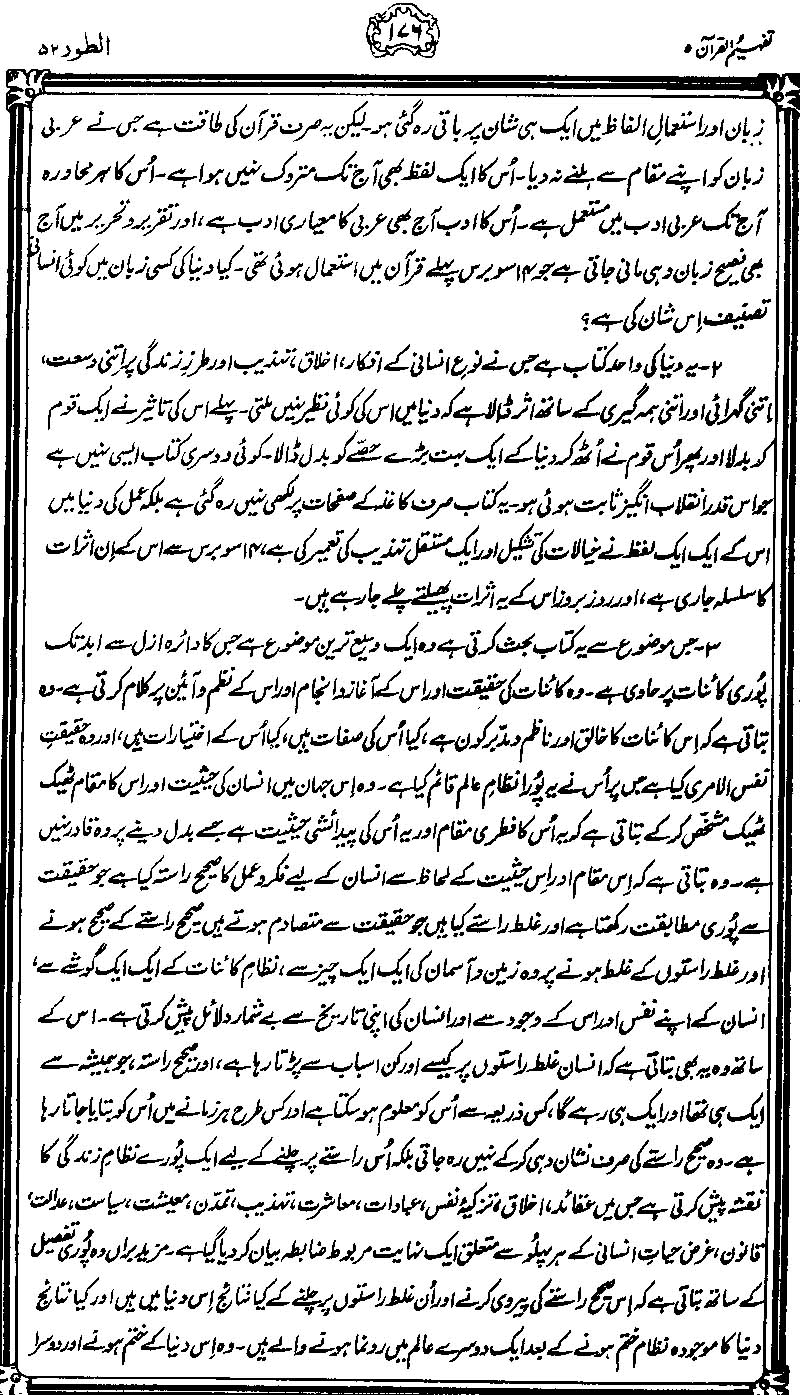 تفہیم القرآن ۵
۱۷۶
الطور ۵۲
زبان اور استعمالِ الفاظ میں ایک ہی شان پر باقی رہ گئی ہو۔ لیکن یہ صرف قرآن کی طاقت ہے جس نے عربی
زبان کو اپنے مقام سے ہلنے نہ دیا۔ اُس کا ایک لفظ بھی آج تک متروک نہیں ہوا ہے۔ اُس کا ہر محاورہ
آج تک عربی ادب میں مستعمل ہے۔ اُس کا ادب آج بھی عربی کا معیاری ادب ہے، اور تقریر و تحریر میں آج
بھی فصیح زبان وہی مانی جاتی ہے جو ۱۴ سو برس پہلے قرآن میں استعمال ہوئی تھی۔ کیا دنیا کی کسی زبان میں کوئی انسانی
تصنیف اِس شان کی ہے؟
۲۔ یہ دنیا کی واحد کتاب ہے جس نے نوعِ انسانی کے افکار، اخلاق، تہذیب اور طرزِ زندگی پر اِتنی وسعت،
اتنی گہرائی اور اتنی ہمہ گیری کے ساتھ اثر ڈالا ہے کہ دنیا میں اس کی کوئی نظیر نہیں ملتی۔ پہلے اس کی تاثیر نے ایک قوم
کو بدلا اور پھر اُس قوم نے اُٹھ کر دنیا کے ایک بہت بڑے حصّے کو بدل ڈالا۔ کوئی دوسری کتاب ایسی نہیں ہے
جو اس قدر انقلاب انگیز ثابت ہوئی ہو۔ یہ کتاب صرف کاغذ کے صفحات پر لکھی نہیں رہ گئی ہے بلکہ عمل کی دنیا میں
اس کے ایک ایک لفظ نے خیالات کی تشکیل اور ایک مستقل تہذیب کی تعمیر کی ہے، ۱۴ سو برس سے اس کے اِن اثرات
کا سلسلہ جاری ہے، اور روز بروز اس کے یہ اثرات پھیلتے چلے جا رہے ہیں۔
۳۔ جس موضوع سے یہ کتاب بحث کرتی ہے وہ ایک وسیع ترین موضوع ہے جس کا دائرہ ازل سے ابد تک
پوری کائنات پر حاوی ہے۔ وہ کائنات کی حقیقت اور اس کے آغاز و انجام اور اس کے نظم و آئین پر کلام کرتی ہے۔ وہ
بتاتی ہے کہ اِس کائنات کا خالق اور ناظم و مدبّر کون ہے، کیا اُس کی صفات ہیں، کیا اُس کے اختیارات ہیں، اور وہ حقیقتِ
نفس الامری کیا ہے جس پر اُس نے یہ پورا نظامِ عالم قائم کیا ہے۔ وہ اِس جہان میں انسان کی حیثیت اور اس کا مقام ٹھیک
ٹھیک مشخّص کر کے بتاتی ہے کہ یہ اُس کا فطری مقام اور یہ اُس کی پیدائشی حیثیت ہے جسے بدل دینے پر وہ قادر نہیں
ہے۔ وہ بتاتی ہے کہ اِس مقام اور اِس حیثیت کے لحاظ سے انسان کے لیے فکر و عمل کا صحیح راستہ کیا ہے جو حقیقت
سے پُوری مطابقت رکھتا ہے اور غلط راستے کیا ہیں جو حقیقت سے متصادم ہوتے ہیں۔ صحیح راستے کے صحیح ہونے
اور غلط راستوں کے غلط ہونے پر وہ زمین و آسمان کی ایک ایک چیز سے، نظامِ کائنات کے ایک ایک گوشے سے،
انسان کے اپنے نفس اور اس کے وجود سے اور انسان کی اپنی تاریخ سے بے شمار دلائل پیش کرتی ہے۔ اس کے
ساتھ وہ یہ بھی بتاتی ہے کہ انسان غلط راستوں پر کیسے اور کن اسباب سے پڑتا رہا ہے، اور صحیح راستہ، جو ہمیشہ سے
ایک ہی تھا اور ایک ہی رہے گا، کس ذریعہ سے اُس کو معلوم ہو سکتا ہے اور کس طرح ہر زمانے میں اُس کو بتایا جاتا رہا
ہے۔ وہ صحیح راستے کی صرف نشان دہی کر کے نہیں رہ جاتی بلکہ اُس راستے پر چلنے کے لیے ایک پُورے نظامِ زندگی کا
نقشہ پیش کرتی ہے جس میں عقائد، اخلاق، تزکیۂ نفس، عبادات، معاشرت، تہذیب، تمدّن، معیشت، سیاست، عدالت،
قانون، غرض حیاتِ انسانی کے ہر پہلو سے متعلق ایک نہایت مربوط ضابطہ بیان کر دیا گیا ہے۔ مزید براں وہ پُوری تفصیل
کے ساتھ بتاتی ہے کہ اِس صحیح راستے کی پیروی کرنے اور اُن غلط راستوں پر چلنے کے کیا نتائج اِس دنیا میں ہیں اور کیا نتائج
دنیا کا موجودہ نظام ختم ہونے کے بعد ایک دوسرے عالم میں رونما ہونے والے ہیں۔ وہ اِس دنیا کے ختم ہونے اور دوسرا